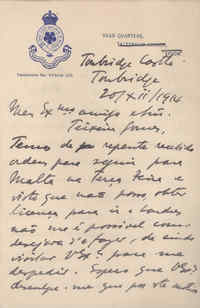 WEAR QUARTERS,
Tonbridge Castle
Tonbridge
20/XII/1914
Meu Exmo amigo e Snr.
Teixeira Gomes,
Tendo de repente recebido
ordem para seguir para
Malta na Terça feira e
visto que não posso obter
licença para ir a Londres
não me é possivel como
desejava de ainda
visitar V Exa para me
despedir. Espero que V Exa
desculpe me que por este